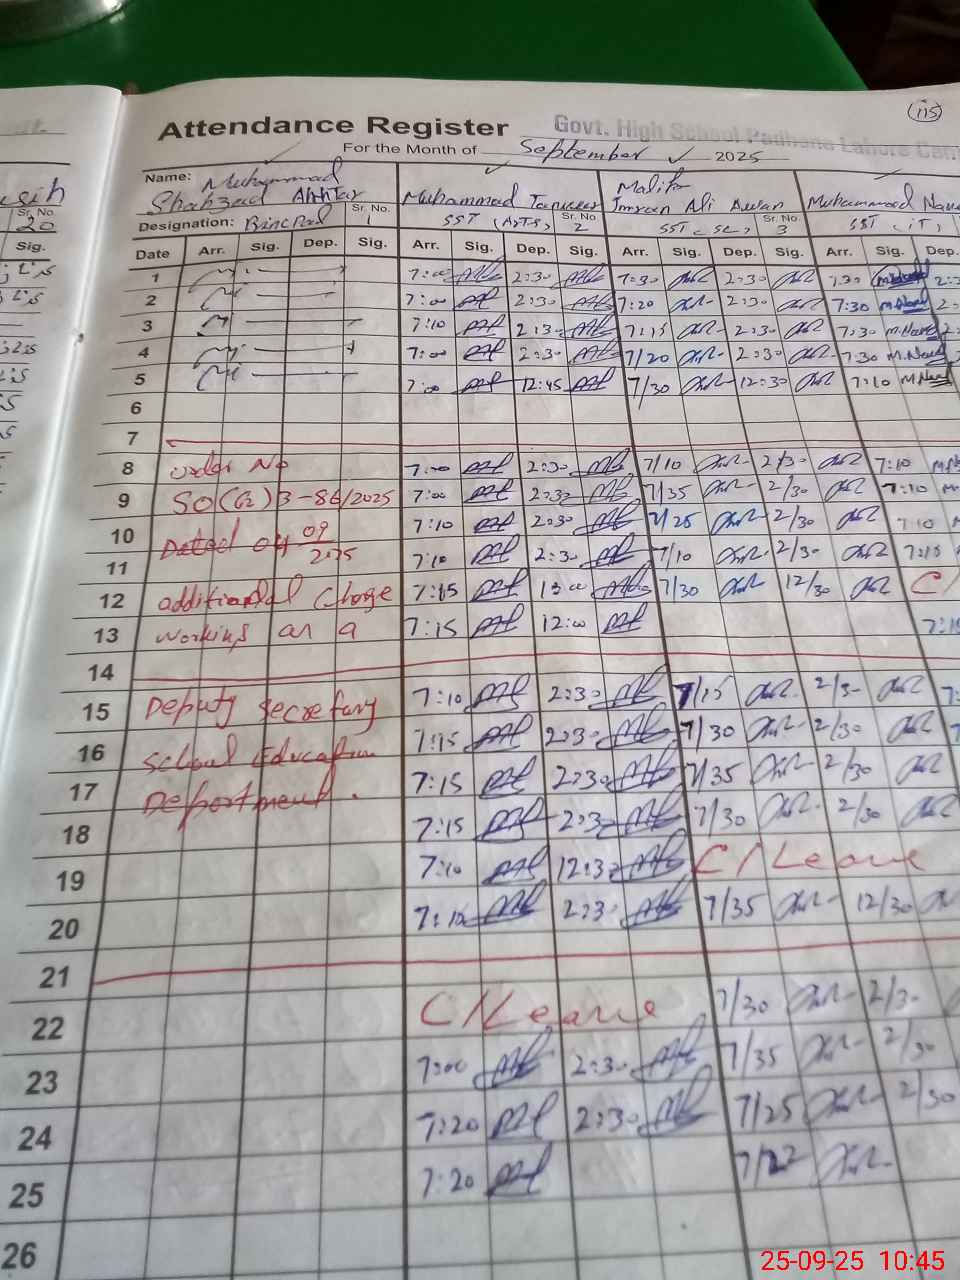 115
Attendance Register Govt. High School Padhana Lahore Can
For the Month of September 2025
Name: Muhammad Shahzad Akhtar
Designation: Principal Sr. No. 1
Muhammad Tanveer
SST (Arts) Sr. No. 2
Malik Imran Ali Awan
SST (Sc) Sr. No. 3
Muhammad Nave
SST (IT)
Sr. No. 20
Sig.
Date Arr. Sig. Dep. Sig. Arr. Sig. Dep. Sig. Arr. Sig. Dep. Sig. Arr. Sig. Dep.
1 7:00 2:30 7:30 2:30 7:30
2 7:00 2:30 7:20 2:30 7:30
3 7:10 2:30 7:15 2:30 7:30
4 7:00 2:30 7/20 2:30 7:30
5 7:00 12:45 7/30 12:30 7:10
6
7
8 order No 7:00 2:30 7/10 2/30 7:10
9 SO(G)3-86/2025 7:00 2:30 7/35 2/30 7:10
10 Dated 04 09 2025 7:10 2:30 7/25 2/30 7:10
11 7:10 2:30 7/10 2/30
12 additional Charge 7:15 7/30 12/30 C/
13 working as a 7:15 12:00
14
15 Deputy Secretary 7:10 2:30 7/15 2/30
16 School Education 7:15 2:30 7/30 2/30
17 Department. 7:15 2:30 7/35 2/30
18 7:15 2:30 7/30 2/30
19 7:10 12:30 C/Leave
20 7:10 2:30 7/35 12/30
21
22 C/Leave 7/30 2/30
23 7:00 2:30 7/35 2/30
24 7:20 2:30 7/25 2/30
25 7:20
26
25-09-25 10:45